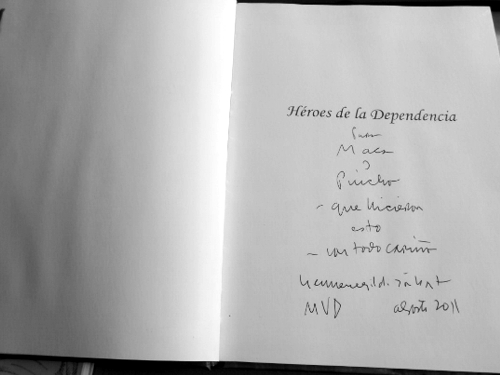 Héroes de la Dependencia
Para
Maca
y
Pincho
- que hicieron
esto
- con todo cariño
MVD agosto 2011